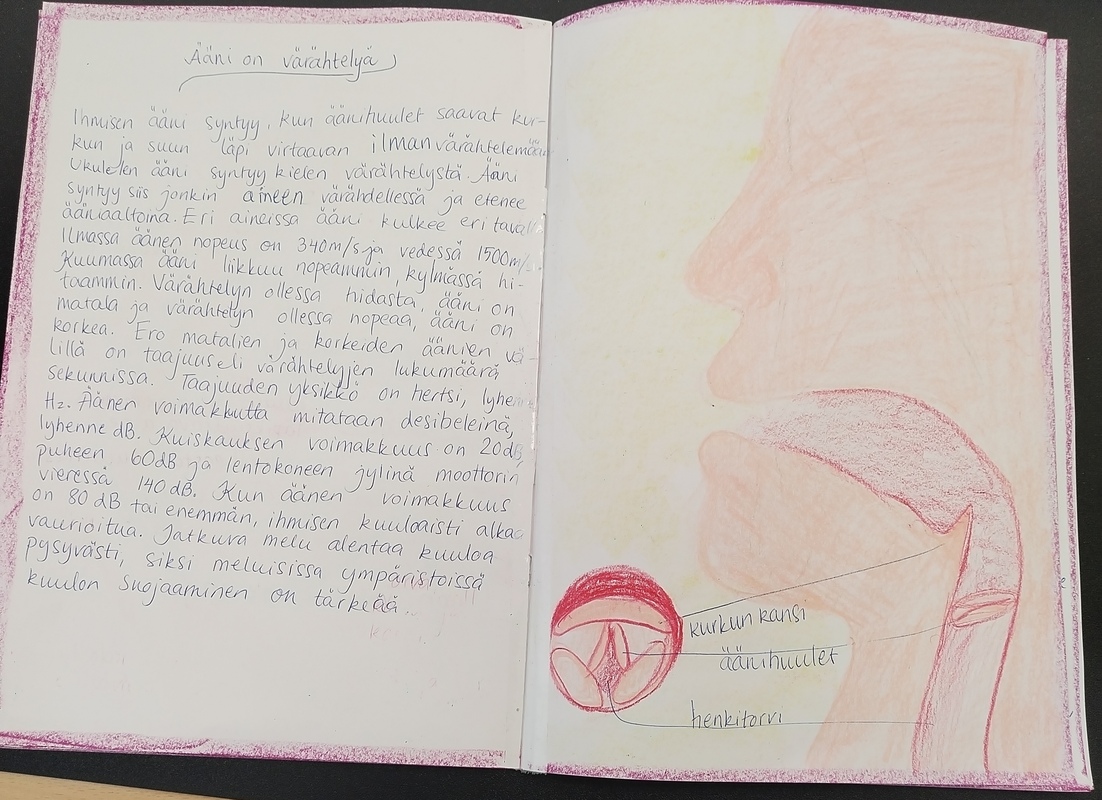 Ääni on värähtelyä
Ihmisen ääni syntyy, kun äänihuulet saavat kur-
kun ja suun läpi virtaavan ilman värähtelemään
Ukulelen ääni syntyy kielen värähtelystä. Ääni
syntyy siis jonkin aineen värähdellessä ja etenee
ääniaaltoina. Eri aineissa ääni kulkee eri tavalla
Ilmassa äänen nopeus on 340m/s ja vedessä 1500m/s.
Kuumassa ääni liikkuu nopeammin, kylmässä hi-
taammin. Värähtelyn ollessa hidasta, ääni on
matala ja värähtelyn ollessa nopeaa, ääni on
korkea. Ero matalien ja korkeiden äänien vä-
lillä on taajuus eli värähtelyjen lukumäärä
sekunnissa. Taajuuden yksikkö on hertsi, lyhenne
Hz. Äänen voimakkutta mitataan desibeleinä,
lyhenne dB. Kuiskauksen voimakkuus on 20dB,
puheen 60dB ja lentokoneen jylinä moottorin
vieressä 140 dB. Kun äänen voimakkuus
on 80 dB tai enemmän, ihmisen kuuloaisti alkaa
vaurioitua. Jatkuva melu alentaa kuuloa
pysyvästi, siksi meluisissa ympäristöissä
kuulon suojaaminen on tärkeää.
kurkun kansi
äänihuulet
henkitorvi